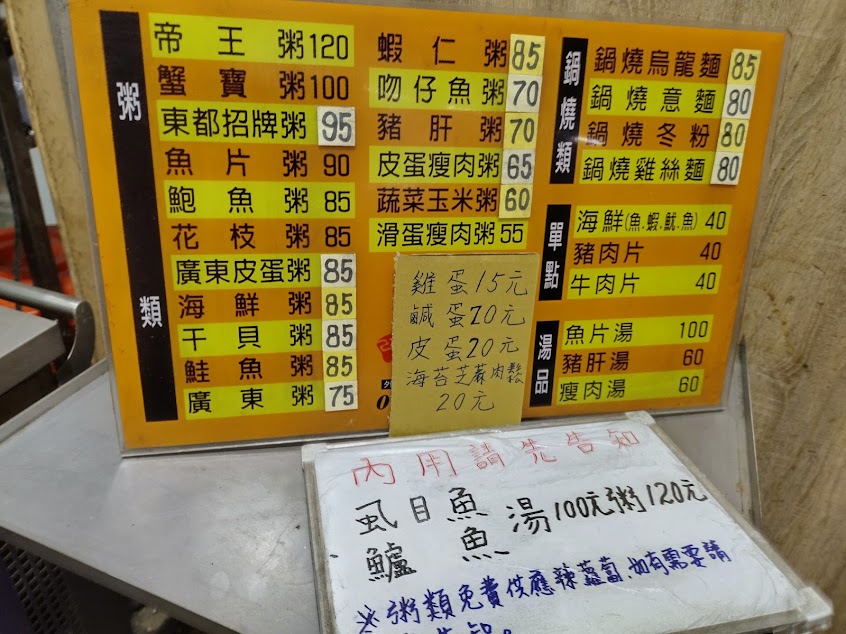 粥類
帝王粥120
蟹寶粥100
東都招牌粥95
魚片粥90
鮑魚粥85
花枝粥85
廣東皮蛋粥85
海鮮粥85
干貝粥85
鮭魚粥85
廣東粥75
蝦仁粥85
吻仔魚粥70
豬肝粥70
皮蛋瘦肉粥65
蔬菜玉米粥60
滑蛋瘦肉粥55
鍋燒類
鍋燒烏龍麵85
鍋燒意麵80
鍋燒冬粉80
鍋燒雞絲麵80
單點
海鮮(魚.蝦.魷.魚)40
豬肉片40
牛肉片40
湯品
魚片湯100
豬肝湯60
瘦肉湯60
雞蛋15元
鹹蛋20元
皮蛋20元
海苔芝蔴肉鬆
20元
內用請先告知
虱目魚
鱸魚
湯100元粥120元
※粥類免費供應辣蘿蔔如有需要請